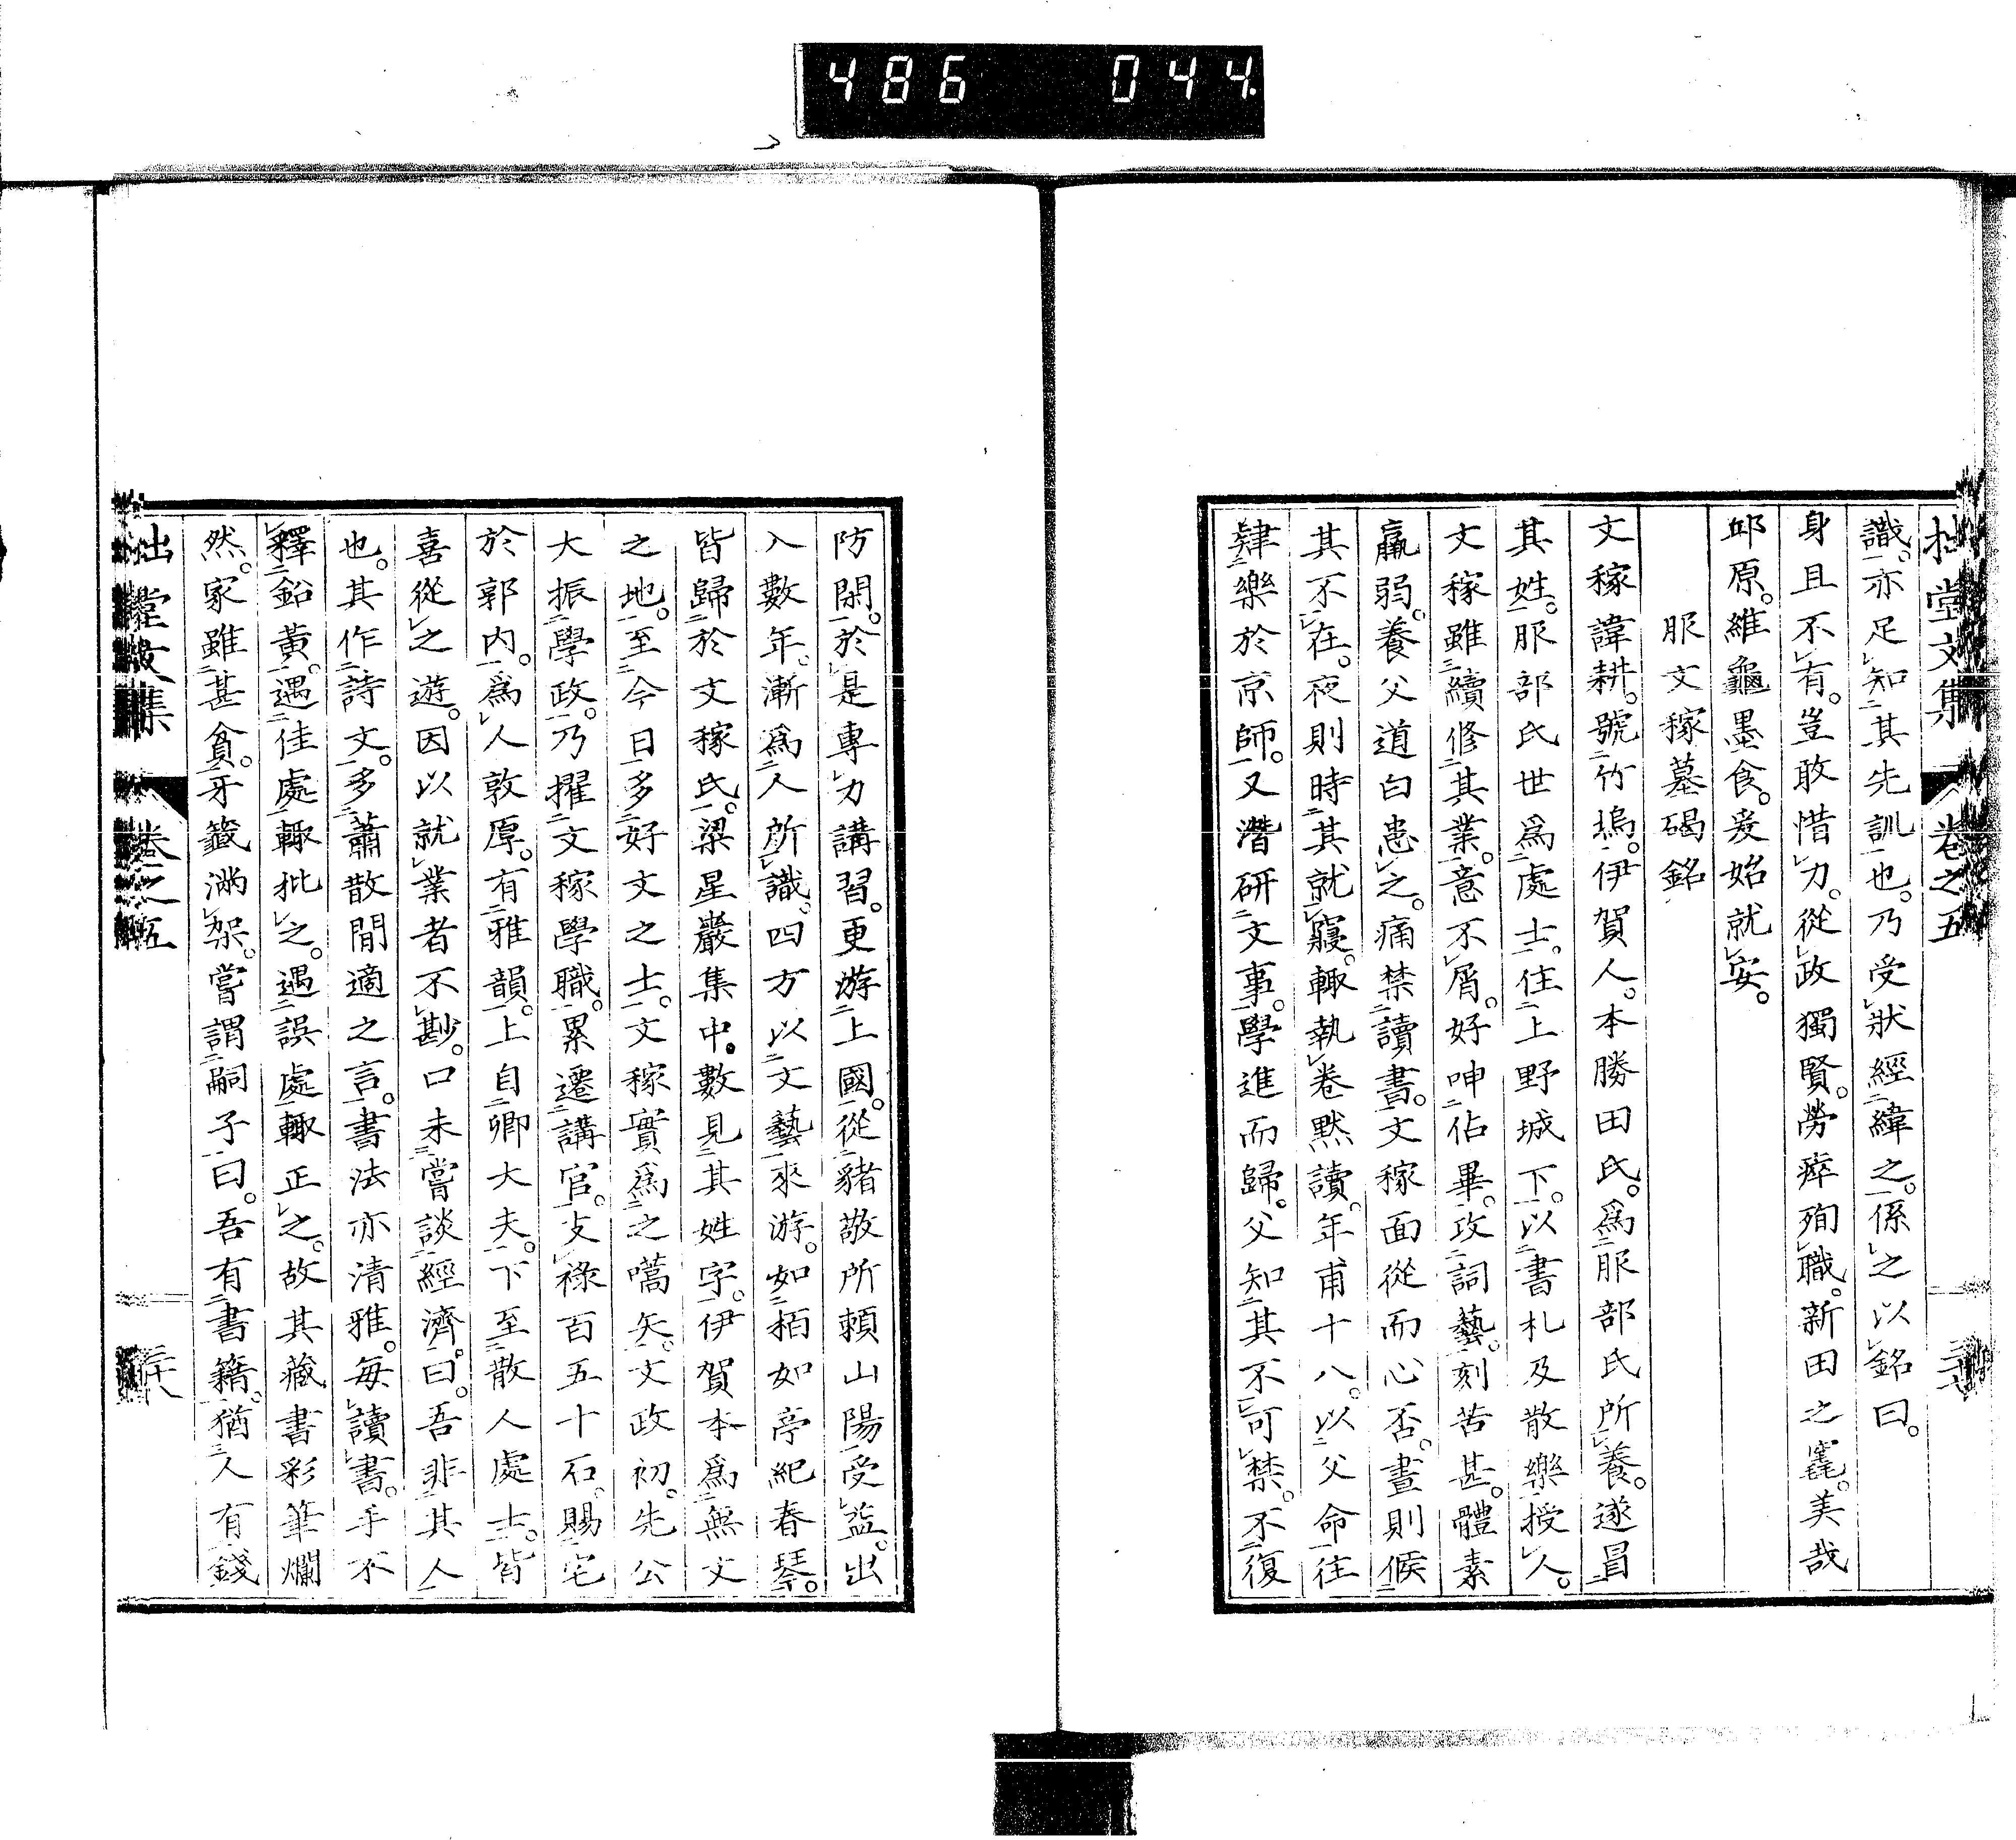 486 044
拙堂文集 卷之五
識。亦足知其先訓也。乃受狀經緯之。係之以銘曰。
身且不有。豈敢惜力。從政獨賢。勞瘁殉職。新田之窀。美哉
邱原。維龜墨食。爰始就安。
服文稼墓碣銘
文稼諱耕。號竹塢。伊賀人。本勝田氏。爲服部氏所養。遂冒
其姓。服部氏世爲處士。住上野城下。以書札及散樂授人。
文稼雖續修其業。意不屑。好呻佔畢。攻詞藝。刻苦甚。體素
羸弱。養父道白患之。痛禁讀書。文稼面從而心否。晝則候
其不在。夜則時其就寢。輙執卷默讀。年甫十八。以父命往
肄樂於京師。又潛研文事。學進而歸。父知其不可禁。不復
防閑。於是專力講習。更游上國。從豬敬所賴山陽受益。出
入數年。漸爲人所識。四方以文藝來游。如栢如亭紀春琴。
皆歸於文稼氏。梁星巖集中。數見其姓字。伊賀本爲無文
之地。至今日多好文之士。文稼實爲之嚆矢。文政初。先公
大振學政。乃擢文稼學職。累遷講官。支祿百五十石。賜宅
於郭內。爲人敦厚。有雅韻。上自卿大夫。下至散人處士。皆
喜從之遊。因以就業者不尠。口未嘗談經濟。曰。吾非其人
也。其作詩文。多蕭散閒適之言。書法亦清雅。每讀書。手不
釋鉛黃。遇佳處輙批之。遇誤處輙正之。故其藏書彩筆爛
然。家雖甚貧。牙籤滿架。嘗謂嗣子曰。吾有書籍。猶人有錢
拙堂文集 卷之五